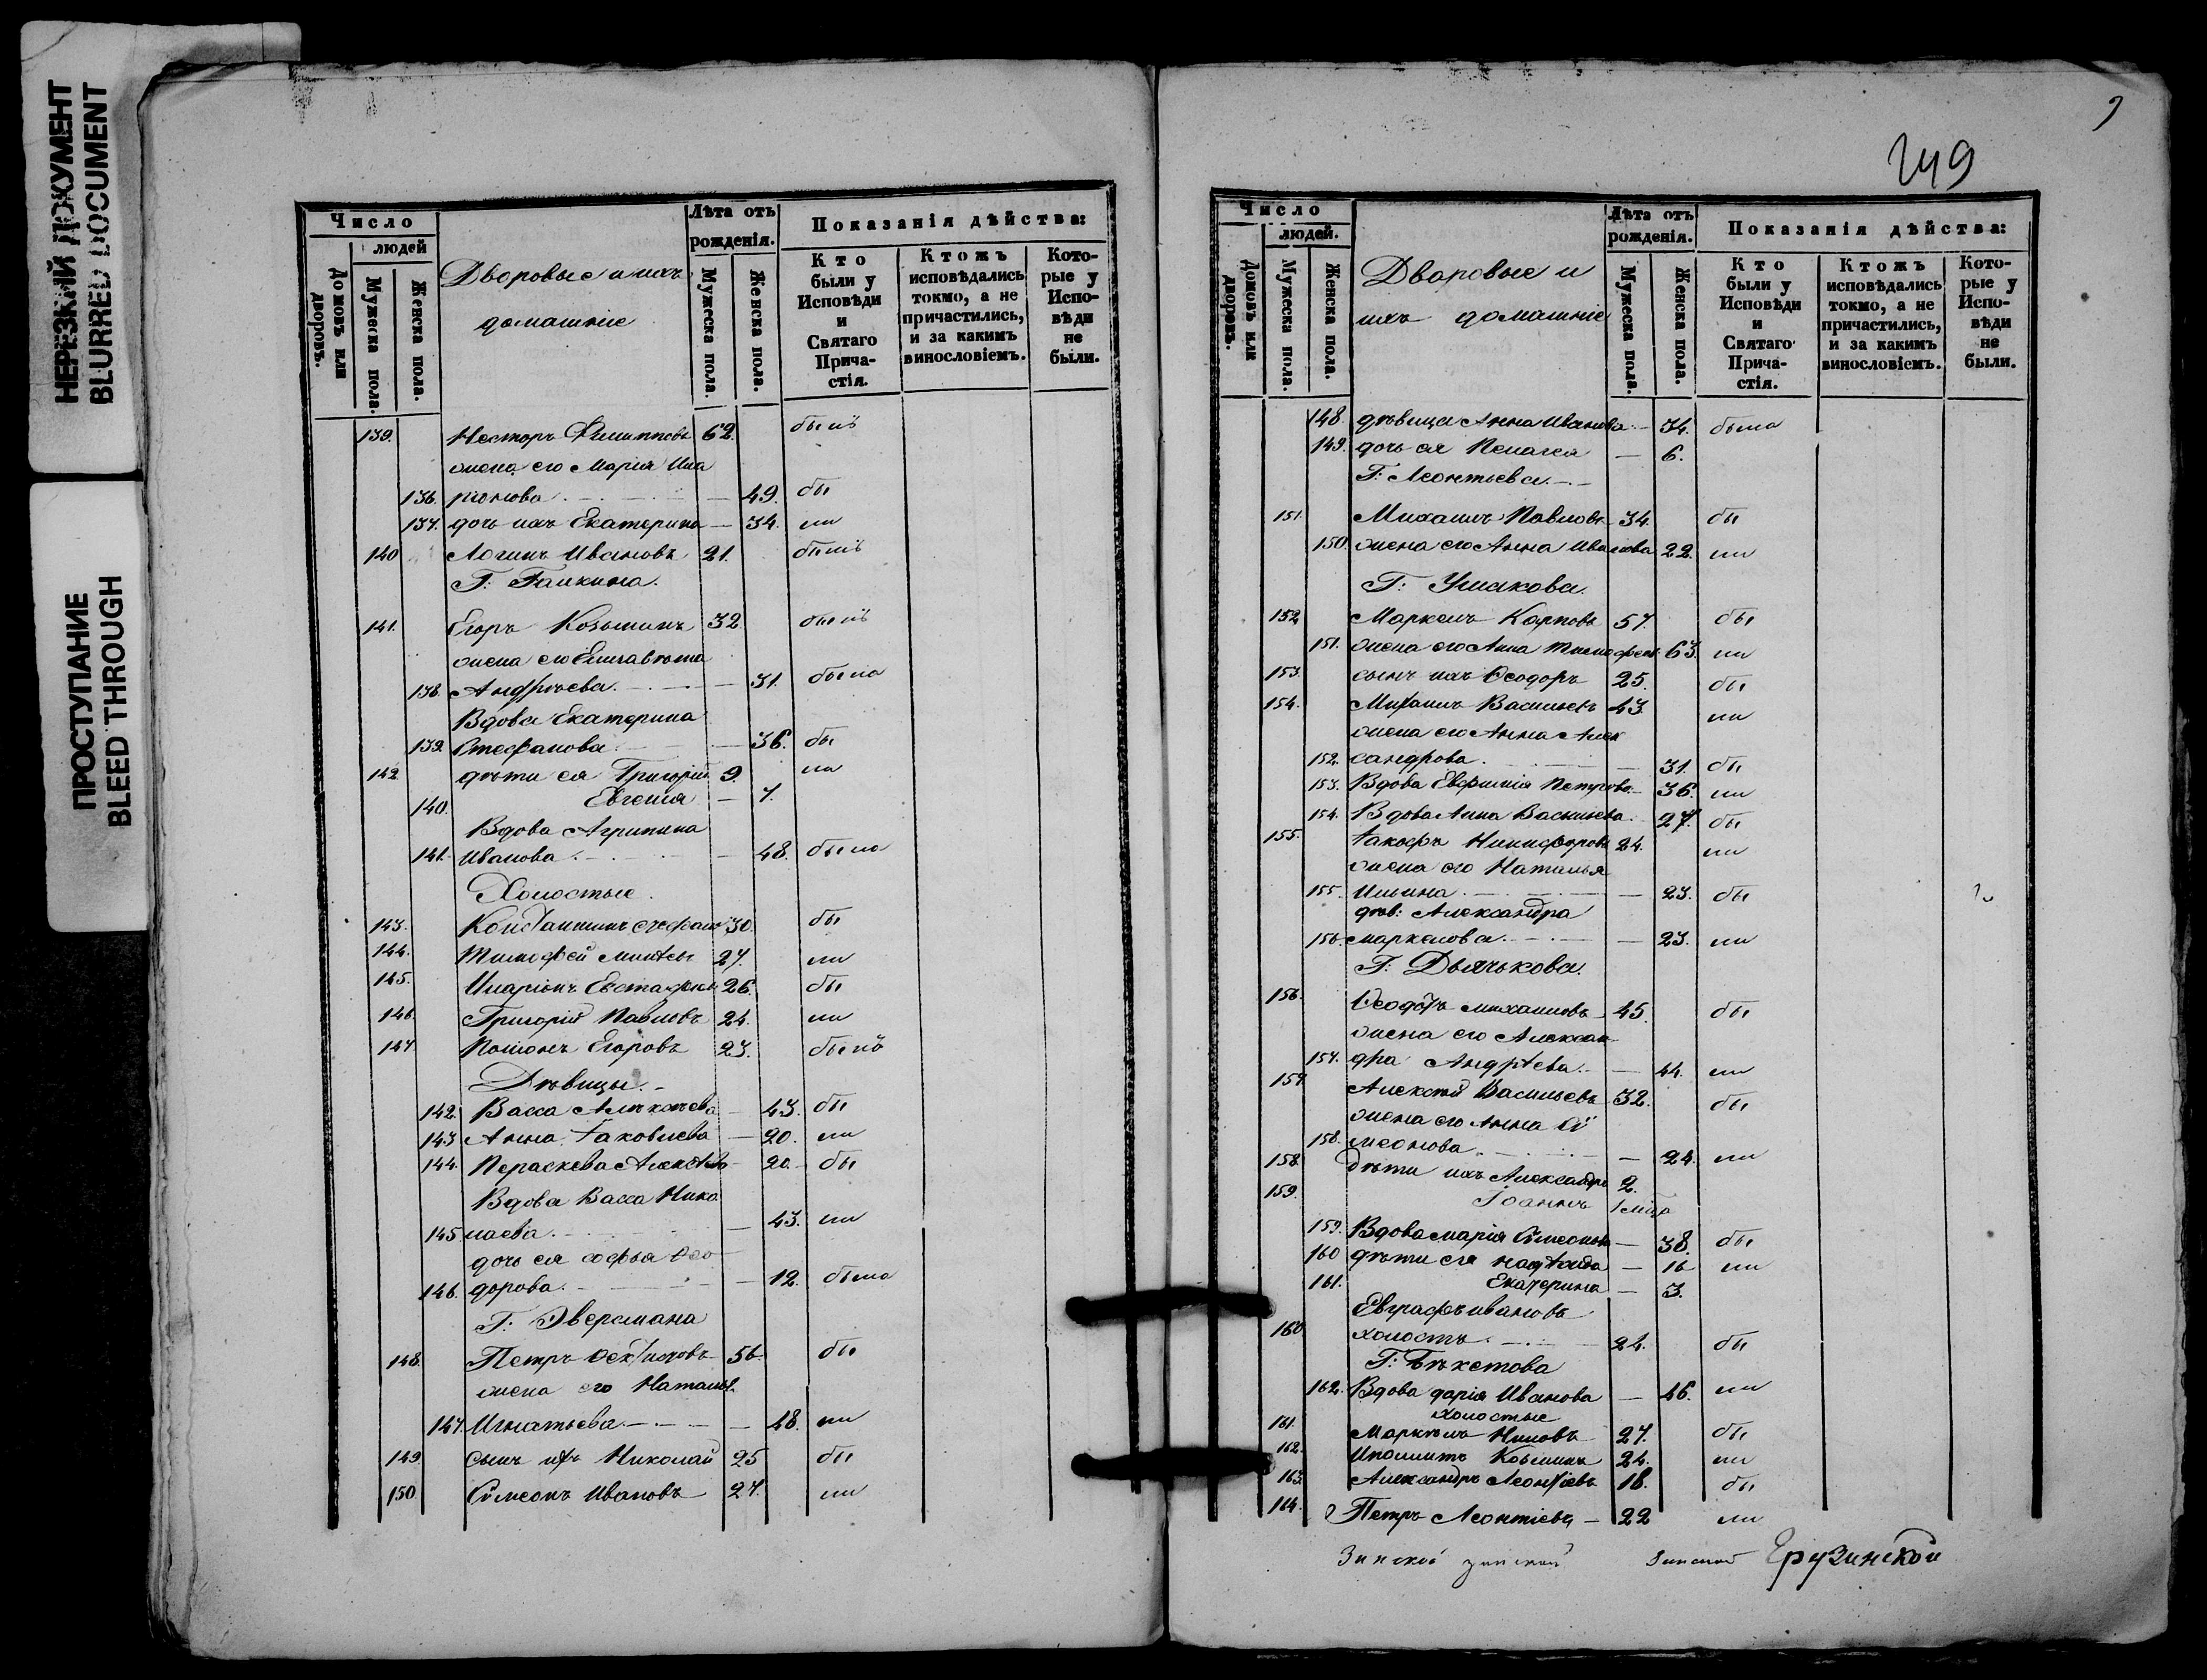 НЕРЕЗКИЙ ДОКУМЕНТ
BLURRED DOCUMENT
ПРОСТУПАНИЕ
BLEED THROUGH
Число
людей
Домовъ или дворовъ.
Мужеска пола.
Женска пола.
Дворовые и ихъ
домашніе
Лѣта отъ рожденія.
Мужеска пола.
Женска пола.
Показанія дѣйства:
Кто были у Исповѣди и Святаго Прича-стія.
Ктожъ исповѣдались токмо, а не причастились, и за какимъ винословіемъ.
Кото-рые у Испо-вѣди не были.
139. Несторъ Филипповъ 62. былъ
жена его Марія Ила
136. ріонова — 49. бы
137. дочь ихъ Екатерина — 34. ли
140 Логинъ Ивановъ 21. былъ
Г: Галкина.
141. Егоръ Козьминъ 32 былъ
жена его Елисавета
138. Андрѣева — 31. была
Вдова Екатерина
139. Стефанова — 36. бы
142. дѣти ея Григорій 9. ли
140. Евгенія — 7.
Вдова Агрипина
141. Иванова — 48. была
Холостые.
143. 30. бы
144. Тимофей 27. ли
145. Иларіонъ 26. бы
146. Григорій Павловъ 24. ли
147. Егоровъ 23. былъ
Дѣвицы.
142. Васса Алексѣева — 43. бы
143 Анна Іаковлева — 20. ли
144. Параскева Алексѣева — 20. бы
Вдова Васса Нико
145. лаева — 43. ли
дочь ея Софья Ѳео
146. дорова — 12. была
Г: Эверсмана
148. Петръ 56. бы
жена его Наталья
147. Игнатьева — 48. ли
149. сынъ ихъ Николай 25 бы
150 Симеонъ Ивановъ 27. ли
249
Число
людей.
Домовъ или дворовъ.
Мужеска пола.
Женска пола.
Дворовые и
ихъ домашніе
Лѣта отъ рожденія.
Мужеска пола.
Женска пола.
Показанія дѣйства:
Кто были у Исповѣди и Святаго Прича-стія.
Ктожъ исповѣдались токмо, а не причастились, и за какимъ винословіемъ.
Кото-рые у Испо-вѣди не были.
148. дѣвица Анна Иванова — 34. была
149. дочь ея Пелагея — 6.
Г: Леонтьева
151. Михаилъ Павловъ 34. бы
150. жена его Анна Иванова 22. ли
Г: Ушакова.
152 Маркелъ Карповъ 57. бы
151. жена его Анна Тимофеев. 63. ли
153. сынъ ихъ Ѳеодоръ 25. бы
154. Михаилъ Васильевъ 43. ли
жена его Анна Алек
152. сандрова — 31. бы
153. Вдова Евфимія Петрова — 36. ли
154. Вдова Анна Васильева 27. бы
155. Іаковъ Никифоровъ 24. ли
жена его Наталья
155. Ильина — 23. бы
дѣв: Александра
156. Маркелова — 23. ли
Г: Дьячькова.
156. Ѳеодотъ Михаиловъ 45. бы
жена его Алексан
157. дра Андрѣева — 44. ли
157 Алексѣй Васильевъ 32. бы
жена его Анна Си
158. меонова — 24. ли
158. дѣти ихъ Александръ 2.
159. Іоаннъ 1
159. Вдова Марія Симеонова — 38. бы
160 дѣти ея Надежда — 16 ли
161. Екатерина — 3.
Евграфъ Ивановъ
160. холостъ — 24. бы
Г: Бѣкетова
162. Вдова Дарія Иванова — 46. ли
холостые
161. Маркелъ Ниловъ 27. бы
162. Иполлитъ Козьминъ 24. ли
163. Александръ Леонтіевъ 18. бы
164. Петръ Леонтіевъ — 22 ли
Грузинской